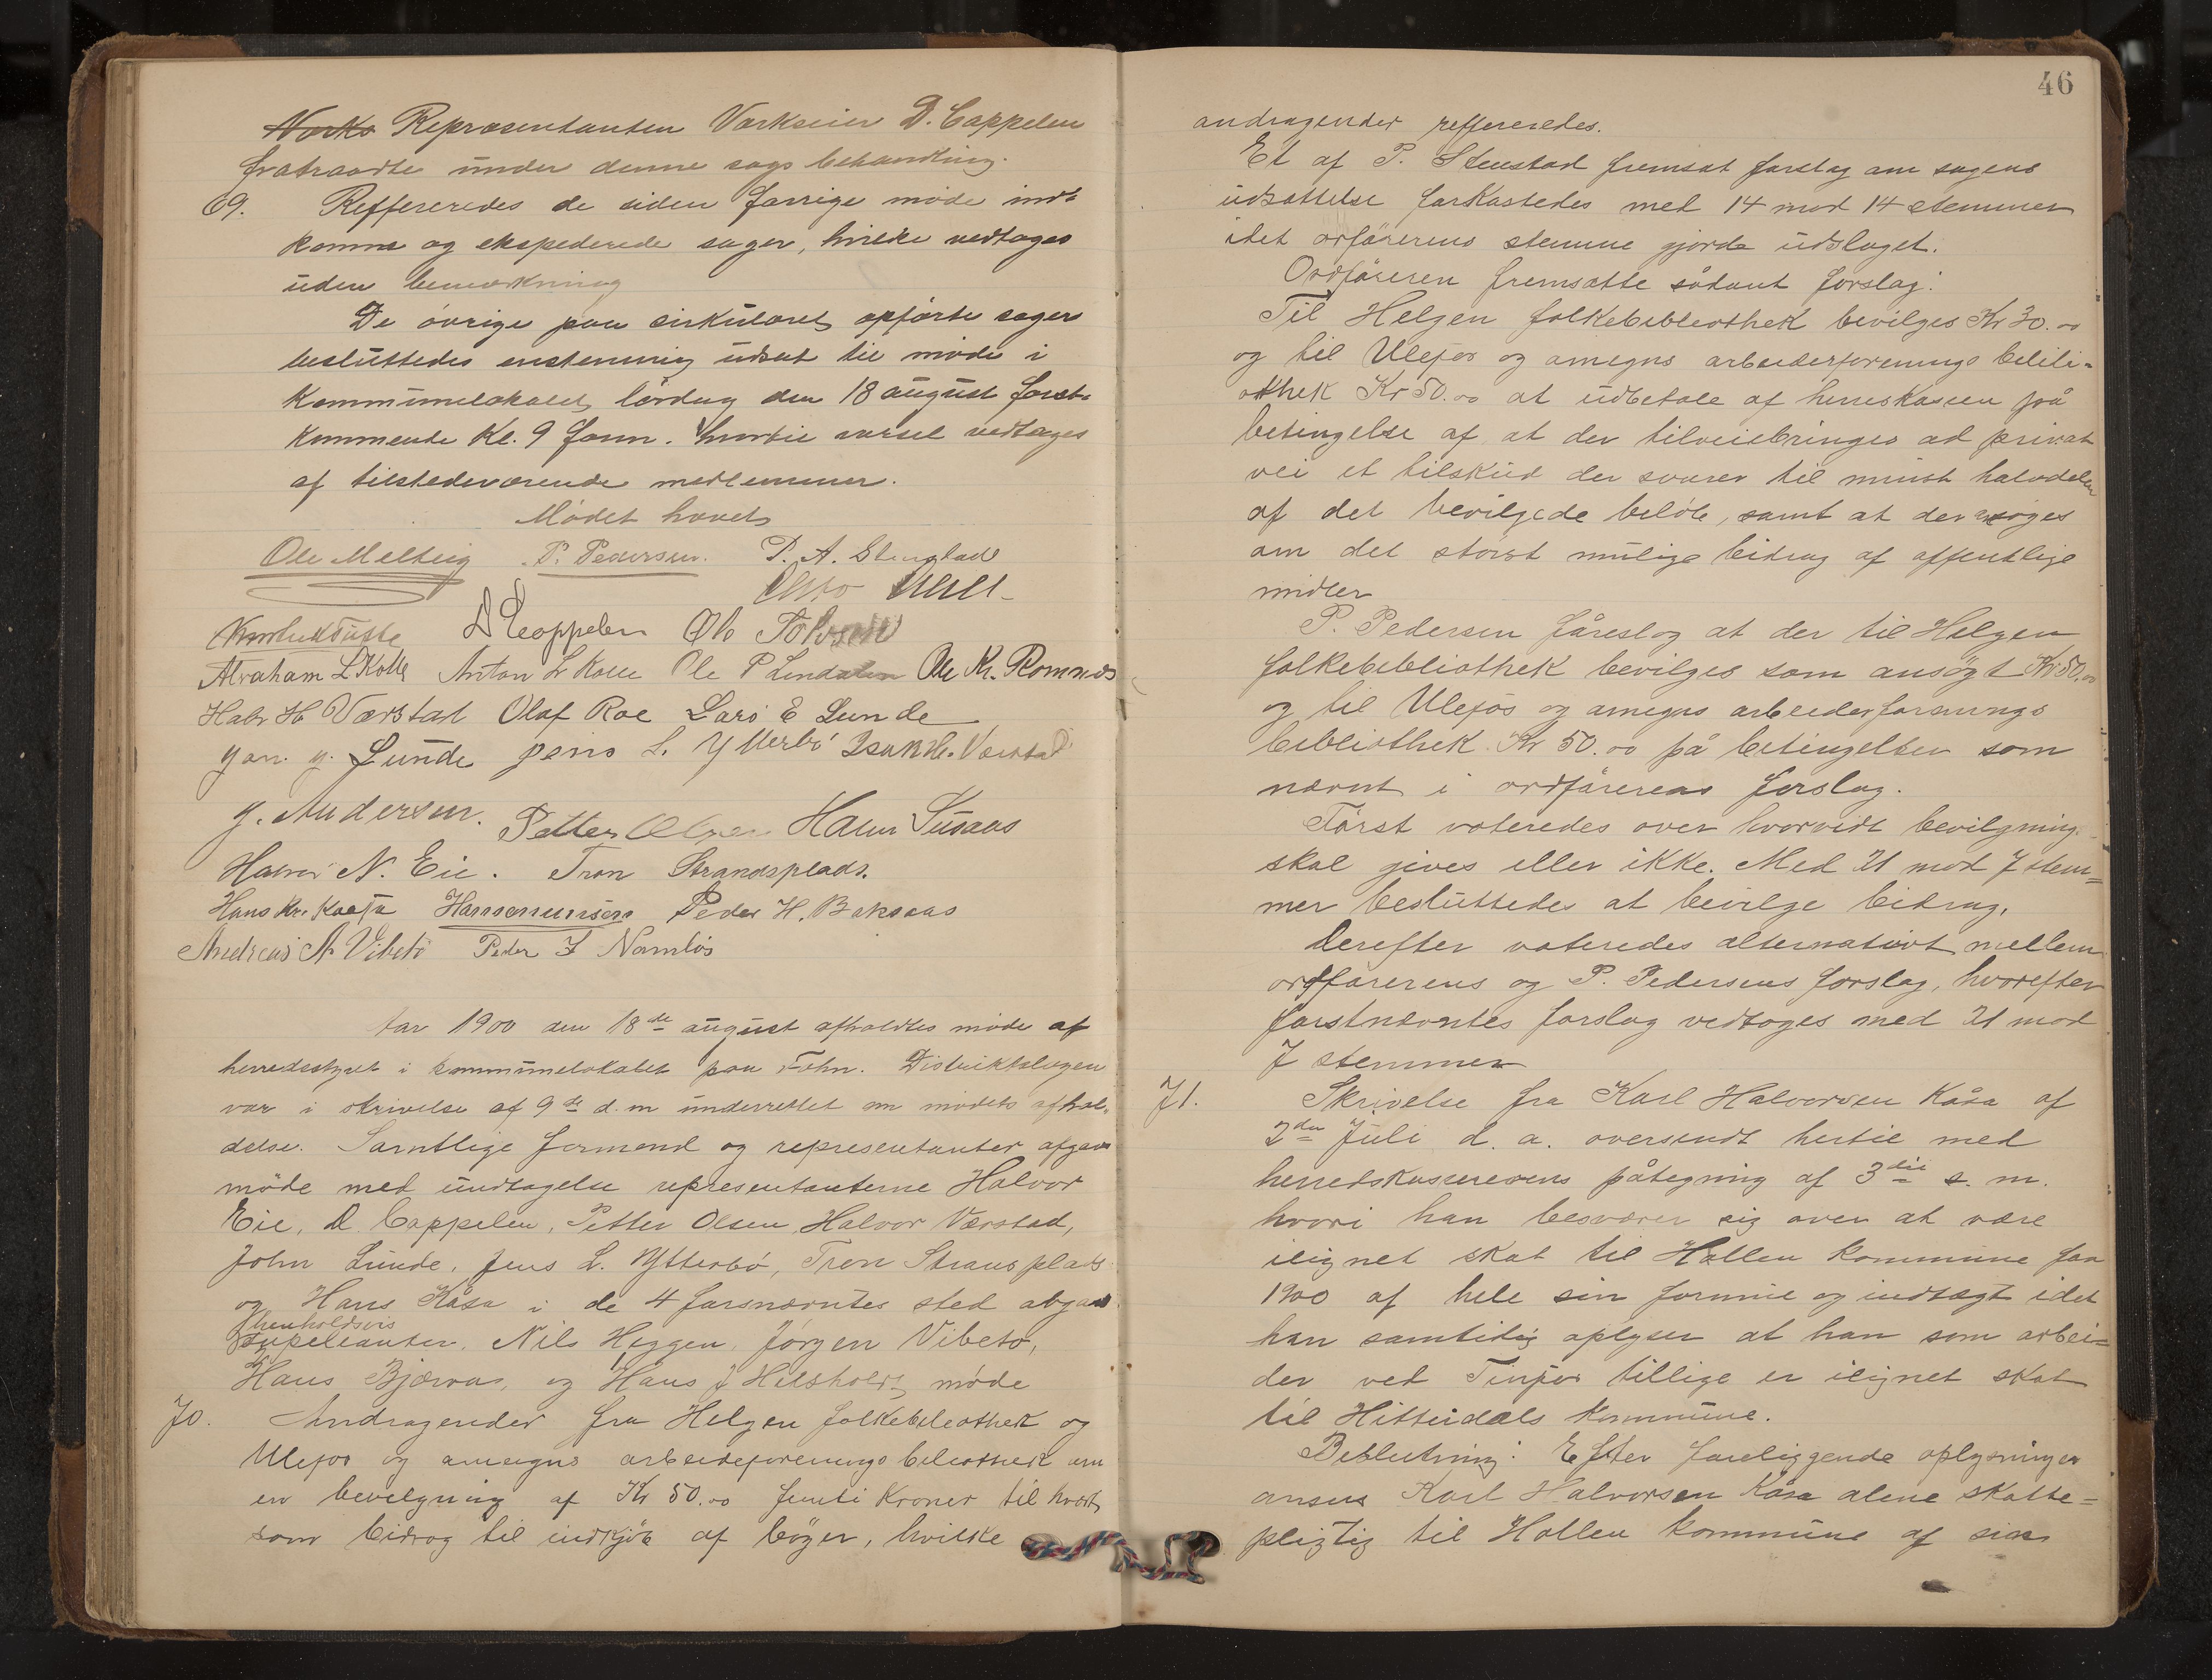 Repræsentanten Værkseier D. Cappelen
fratraadte under denne sags behandling.
69. Reffereredes de siden forrige møde ind-
komne og ekspederede sager, hvilke vedtoges
uden bemærkning
De øvrige paa sirkulæret opførte sager
besluttedes enstemmig udsat til møde i
Kommunelokalet lørdag den 18 august først-
kommende Kl. 9 form. hvortil varsel vedtages
af tilstedeværende medlemmer.
Mødet hævet
Ole Melteig P. Pedersen. P. A. Stenstad
D Cappelen Ole
Abraham L Kolle Anton L Kolle Ole P Lendalen Ole Kr. Romnes
Halv H Værstad Olaf Roe Lars E Lunde
Jon. J. Lunde Jens L. Ytterbö Isak H. Værstad
J. Andersen. Petter Olsen Halvor Susaas
Halvor N. Eie. Tron Strandsplads.
Hans Kr. Kaasa Hans Peder H. Baksaas
Andreas A Vibeto Peder I Namløs
Aar 1900 den 18de august afholdtes møde af
herredsstyret i kommunelokalet paa Fehn. Distriktslægen
var i skrivelse af 9de d.m underrettet om mødets afhol-
delse. Samtlige formænd og representanter afgav
møde med undtagelse representanterne Halvor
Eie, D. Cappelen, Petter Olsen Halvor Værstad,
John Lunde, Jens L. Ytterbø, Tron Stransplads
og Hans Kåsa i de 4 førsnævntes sted afgav
henholdsvis
supelianter. Nils Heggen, Jørgen Vibeto,
Hans Bjærvas, og Hans J Helsholdt, møde
70. Andragender fra Helgen folkebibleothek og
Ulefos og omegns arbeideforenings bibliothek om
en bevelgning af Kr 50.00 femti Kroner til hvert
som bidrag til indkjøb af bøger, hvilke
46
andragender reffereredes.
Et af P. Stenstad fremsat forslag om sagens
udsættelse forkastedes med 14 mod 14 stemmer
idet orførerens stemme gjorde udslaget.
Ordføreren fremsatte sådant forslag:
Til Helgen folkebibliothek bevilges Kr 30.00
og til Ulefos og omegns arbeiderforenings bibli-
othek Kr 50.00 at udbetale af herreskassen på
betingelse af at der tilveiebringes ad privat
vei et tilskud der svarer til minst halvdelen
af det bevilgede beløb, samt at der ansøges
om det størst mulige bidrag af offentlige
midler
P. Pedersen föreslog at der til Helgen
folkebibliothek bevilges som ansøgt Kr 50.00
og til Ulefos og omegns arbeiderforenings
bibliothek Kr 50.00 på betingelser som
nævnt i ordførerens forslag.
Først voteredes over hvorvidt bevilgning
skal gives eller ikke. Med 21 mod 7 stem=
mer besluttedes at bevilge bidrag.
Derefter voteredes alternativt mellem
ordførerens og P. Pedersens forslag, hvorefter
førstnævntes forslag vedtoges med 21 mod
7 stemmer
71. Skrivelse fra Karl Halvorsen Kåsa af
2den Juli d. a. oversendt hertil med
herredskassererens påtegning af 3die s. m.
hvori han besværer sig over at være
ilignet skat til Hollen kommune for
1900 af hele sin formue og indtægt idet
han samtidig oplyser at han som arbei=
der ved Tinfos tillige er ilignet skat
til Hitterdals Kommune.
Beslutning: Efter foreliggende oplysninger
ansees Karl Halvorsen Kåsa alene skatte=
pligtig til Hollen kommune af sin